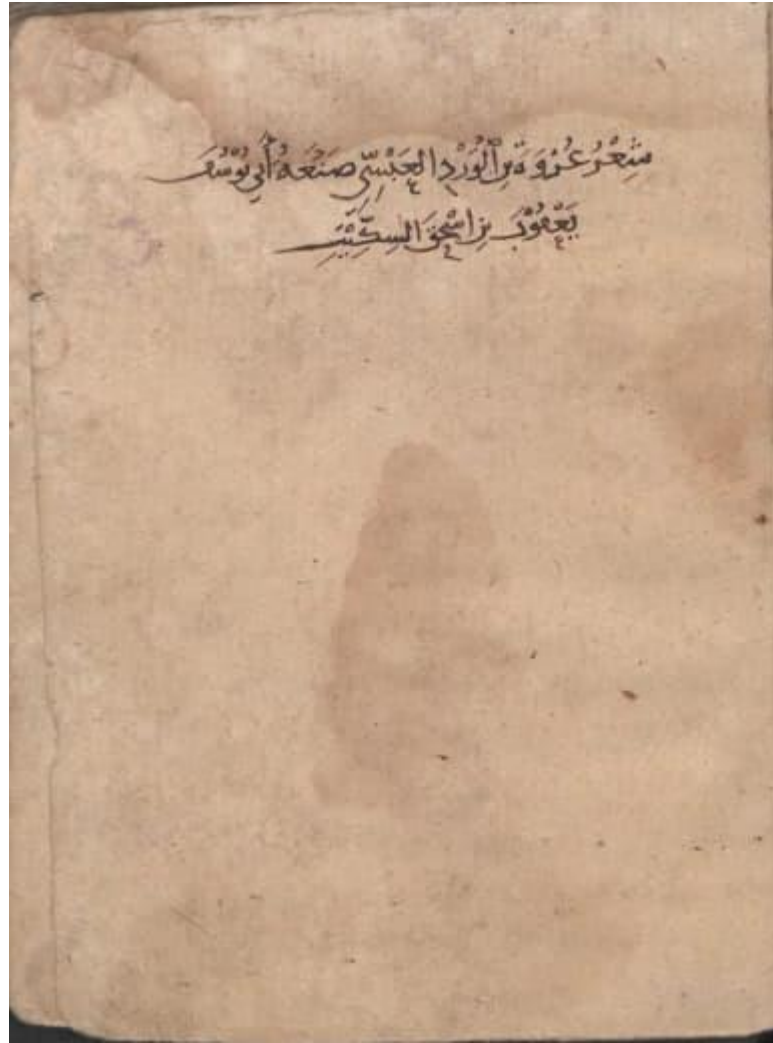 شِعْرُ عُرْوَةَ بنِ ٱلْوَرْدِ العَبْسِيِّ صَنْعَهُ أَبِي يُوْسُفَ
يَعْقُوْبَ بنِ اسْحٰقَ السِكِّيْتِ